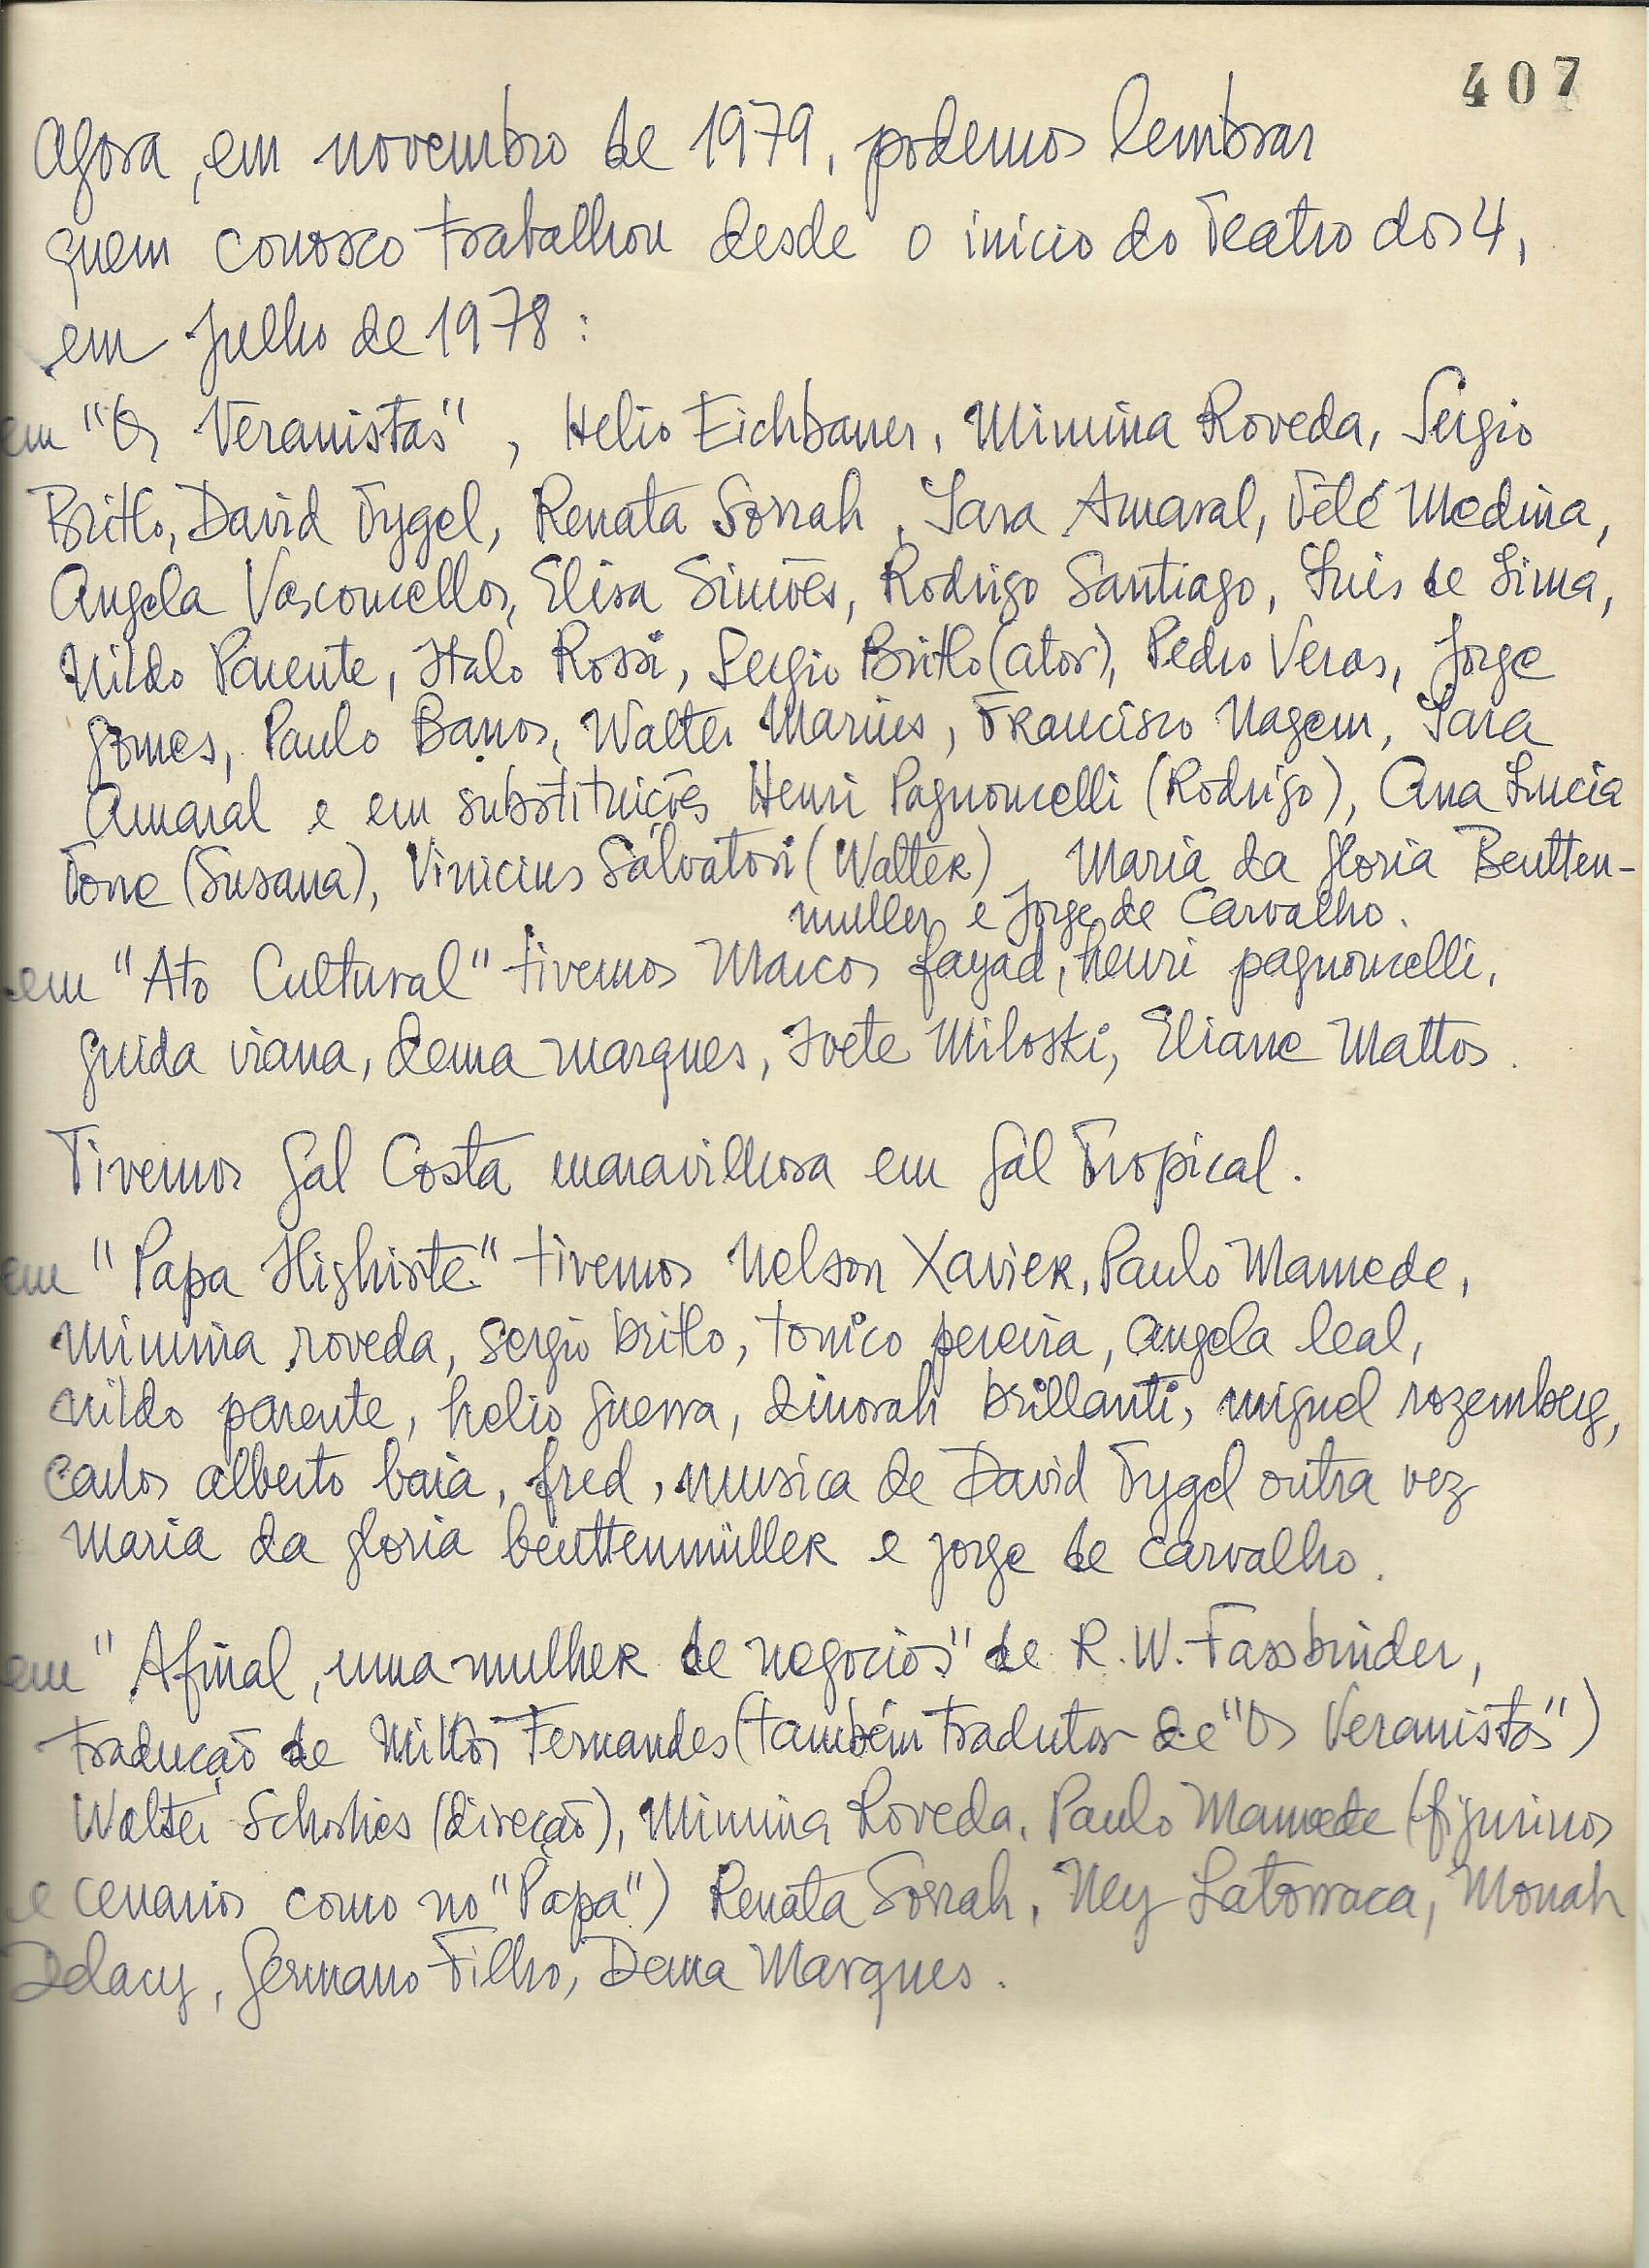 407
Agora, em novembro de 1979, podemos lembrar
quem conosco trabalhou desde o inicio do Teatro dos 4,
em Julho de 1978:
em "Os Veranistas", Helio Eichbauer, Mimina Roveda, Sergio
Britto, David Tygel, Renata Sorrah, Yara Amaral, Tété Medina,
Angela Vasconcellos, Elisa Simões, Rodrigo Santiago, Luis de Lima,
Nildo Parente, Italo Rossi, Sergio Britto (ator), Pedro Veras, Jorge
Gomes, Paulo Barros, Walter Marins, Francisco Nagem, Yara
Amaral e em substituições Henri Pagnoncelli (Rodrigo), Ana Lucia
Torre (Susana), Vinicius Salvatori (Walter), Maria da Gloria Beutten-
muller e Jorge de Carvalho.
em "Ato Cultural" tivemos Marcos fayad, henri pagnoncelli,
guida viana, dema marques, Ivete Miloski, Eliane Mattos.
Tivemos Gal Costa maravilhosa em Gal Tropical.
em "Papa Highirte" tivemos Nelson Xavier, Paulo Mamede,
mimina roveda, sergio britto, tonico pereira, angela leal,
nildo parente, helio guerra, dinorah brillanti, miguel rozemberg,
carlos alberto baia, fred, musica de David Tygel outra vez
maria da gloria beuttenmüller e jorge de carvalho.
em "Afinal, uma mulher de negocios" de R. W. Fassbinder,
tradução de Millôr Fernandes (também tradutor de "Os Veranistas")
Walter Schorlies (direção), Mimina Roveda, Paulo Mamede (figurinos
e cenarios como no "Papa") Renata Sorrah, Ney Latorraca, Monah
Delacy, Germano Filho, Dema Marques.